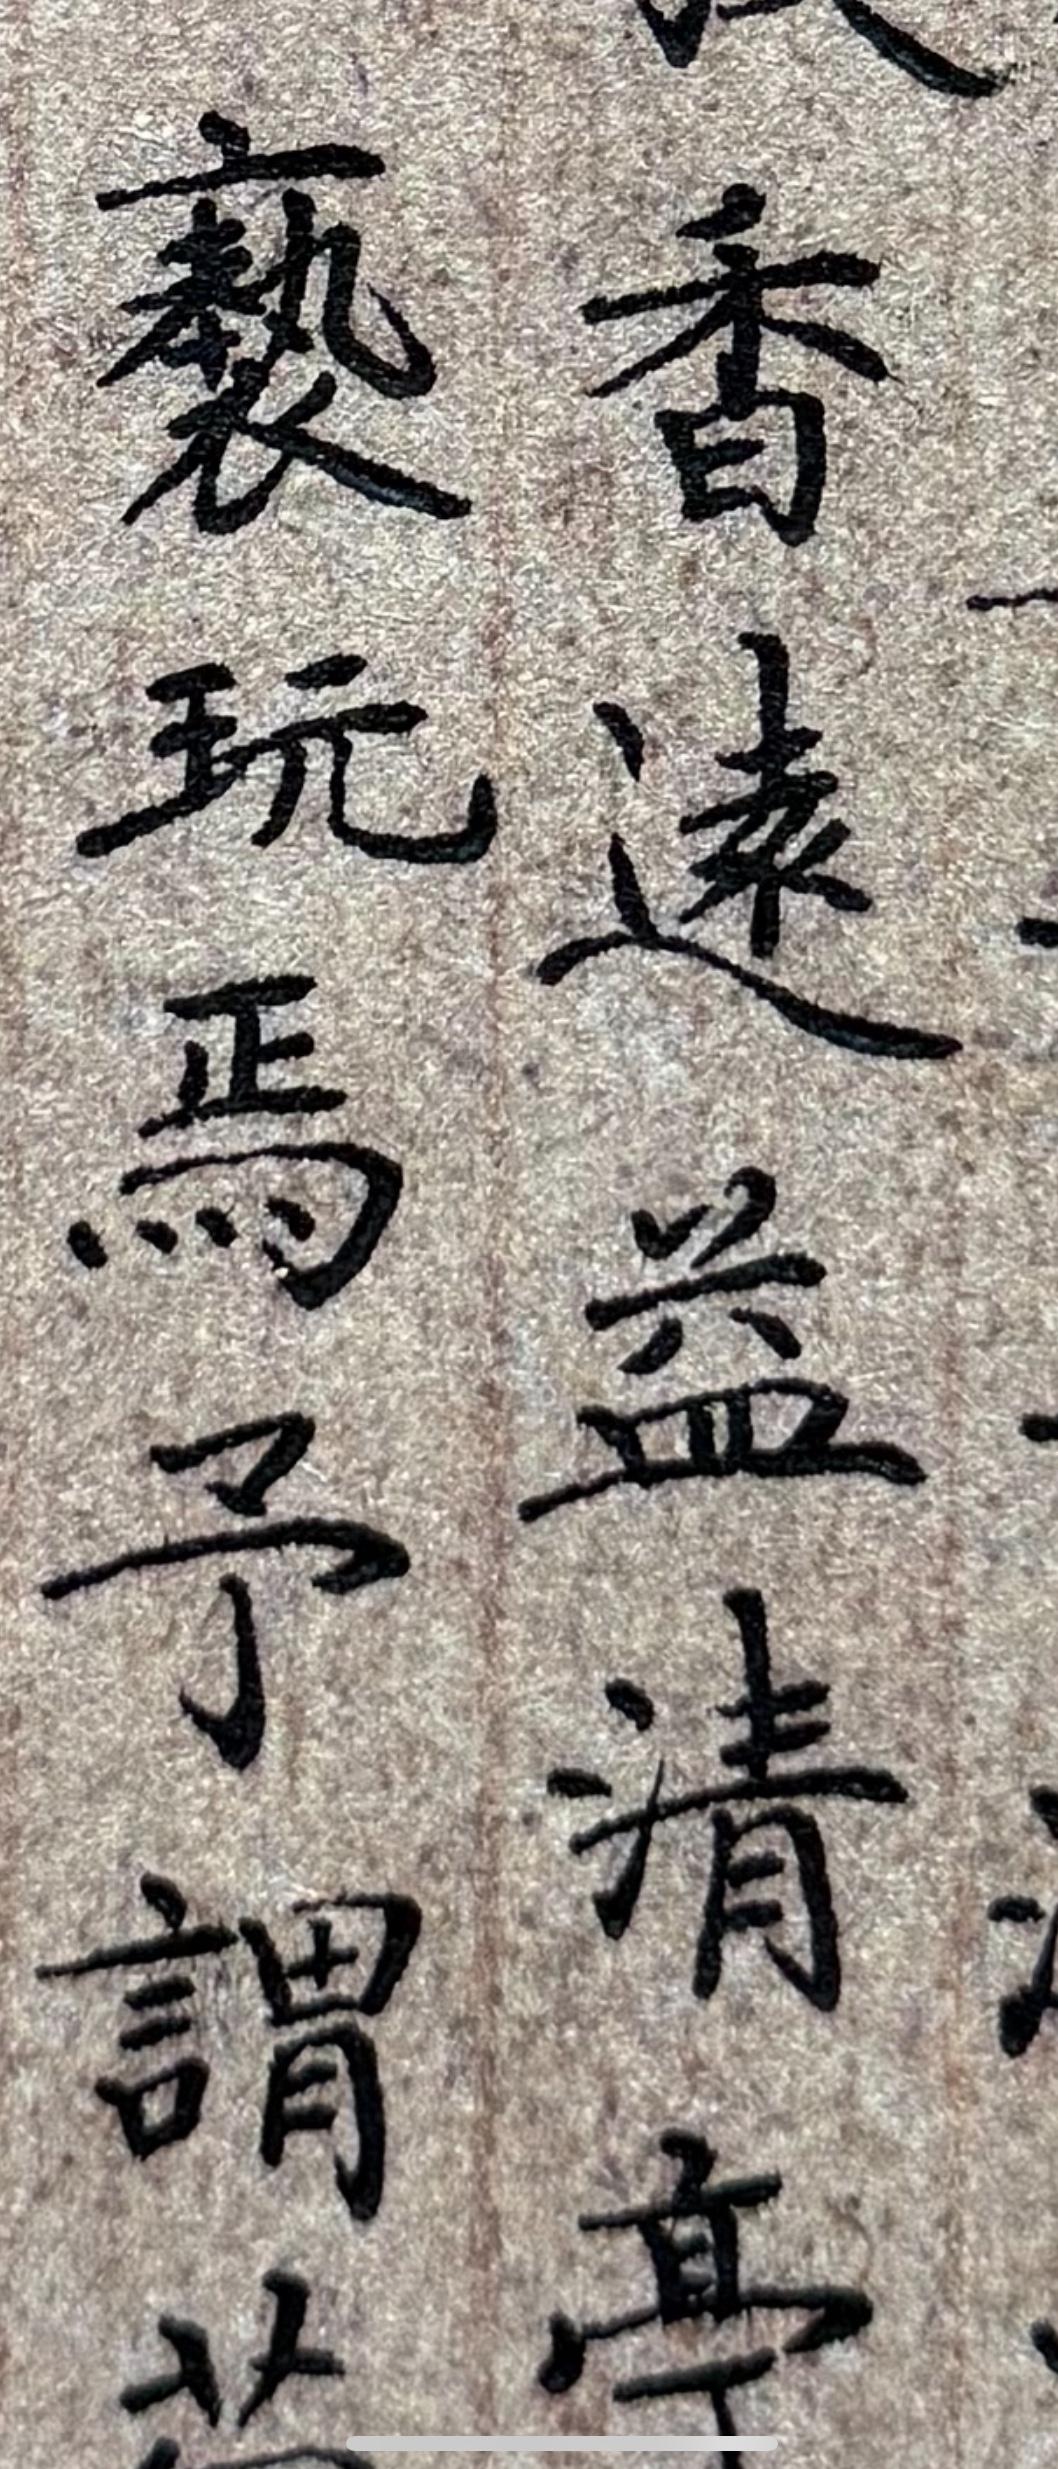 香遠益清亭
褻玩焉予謂